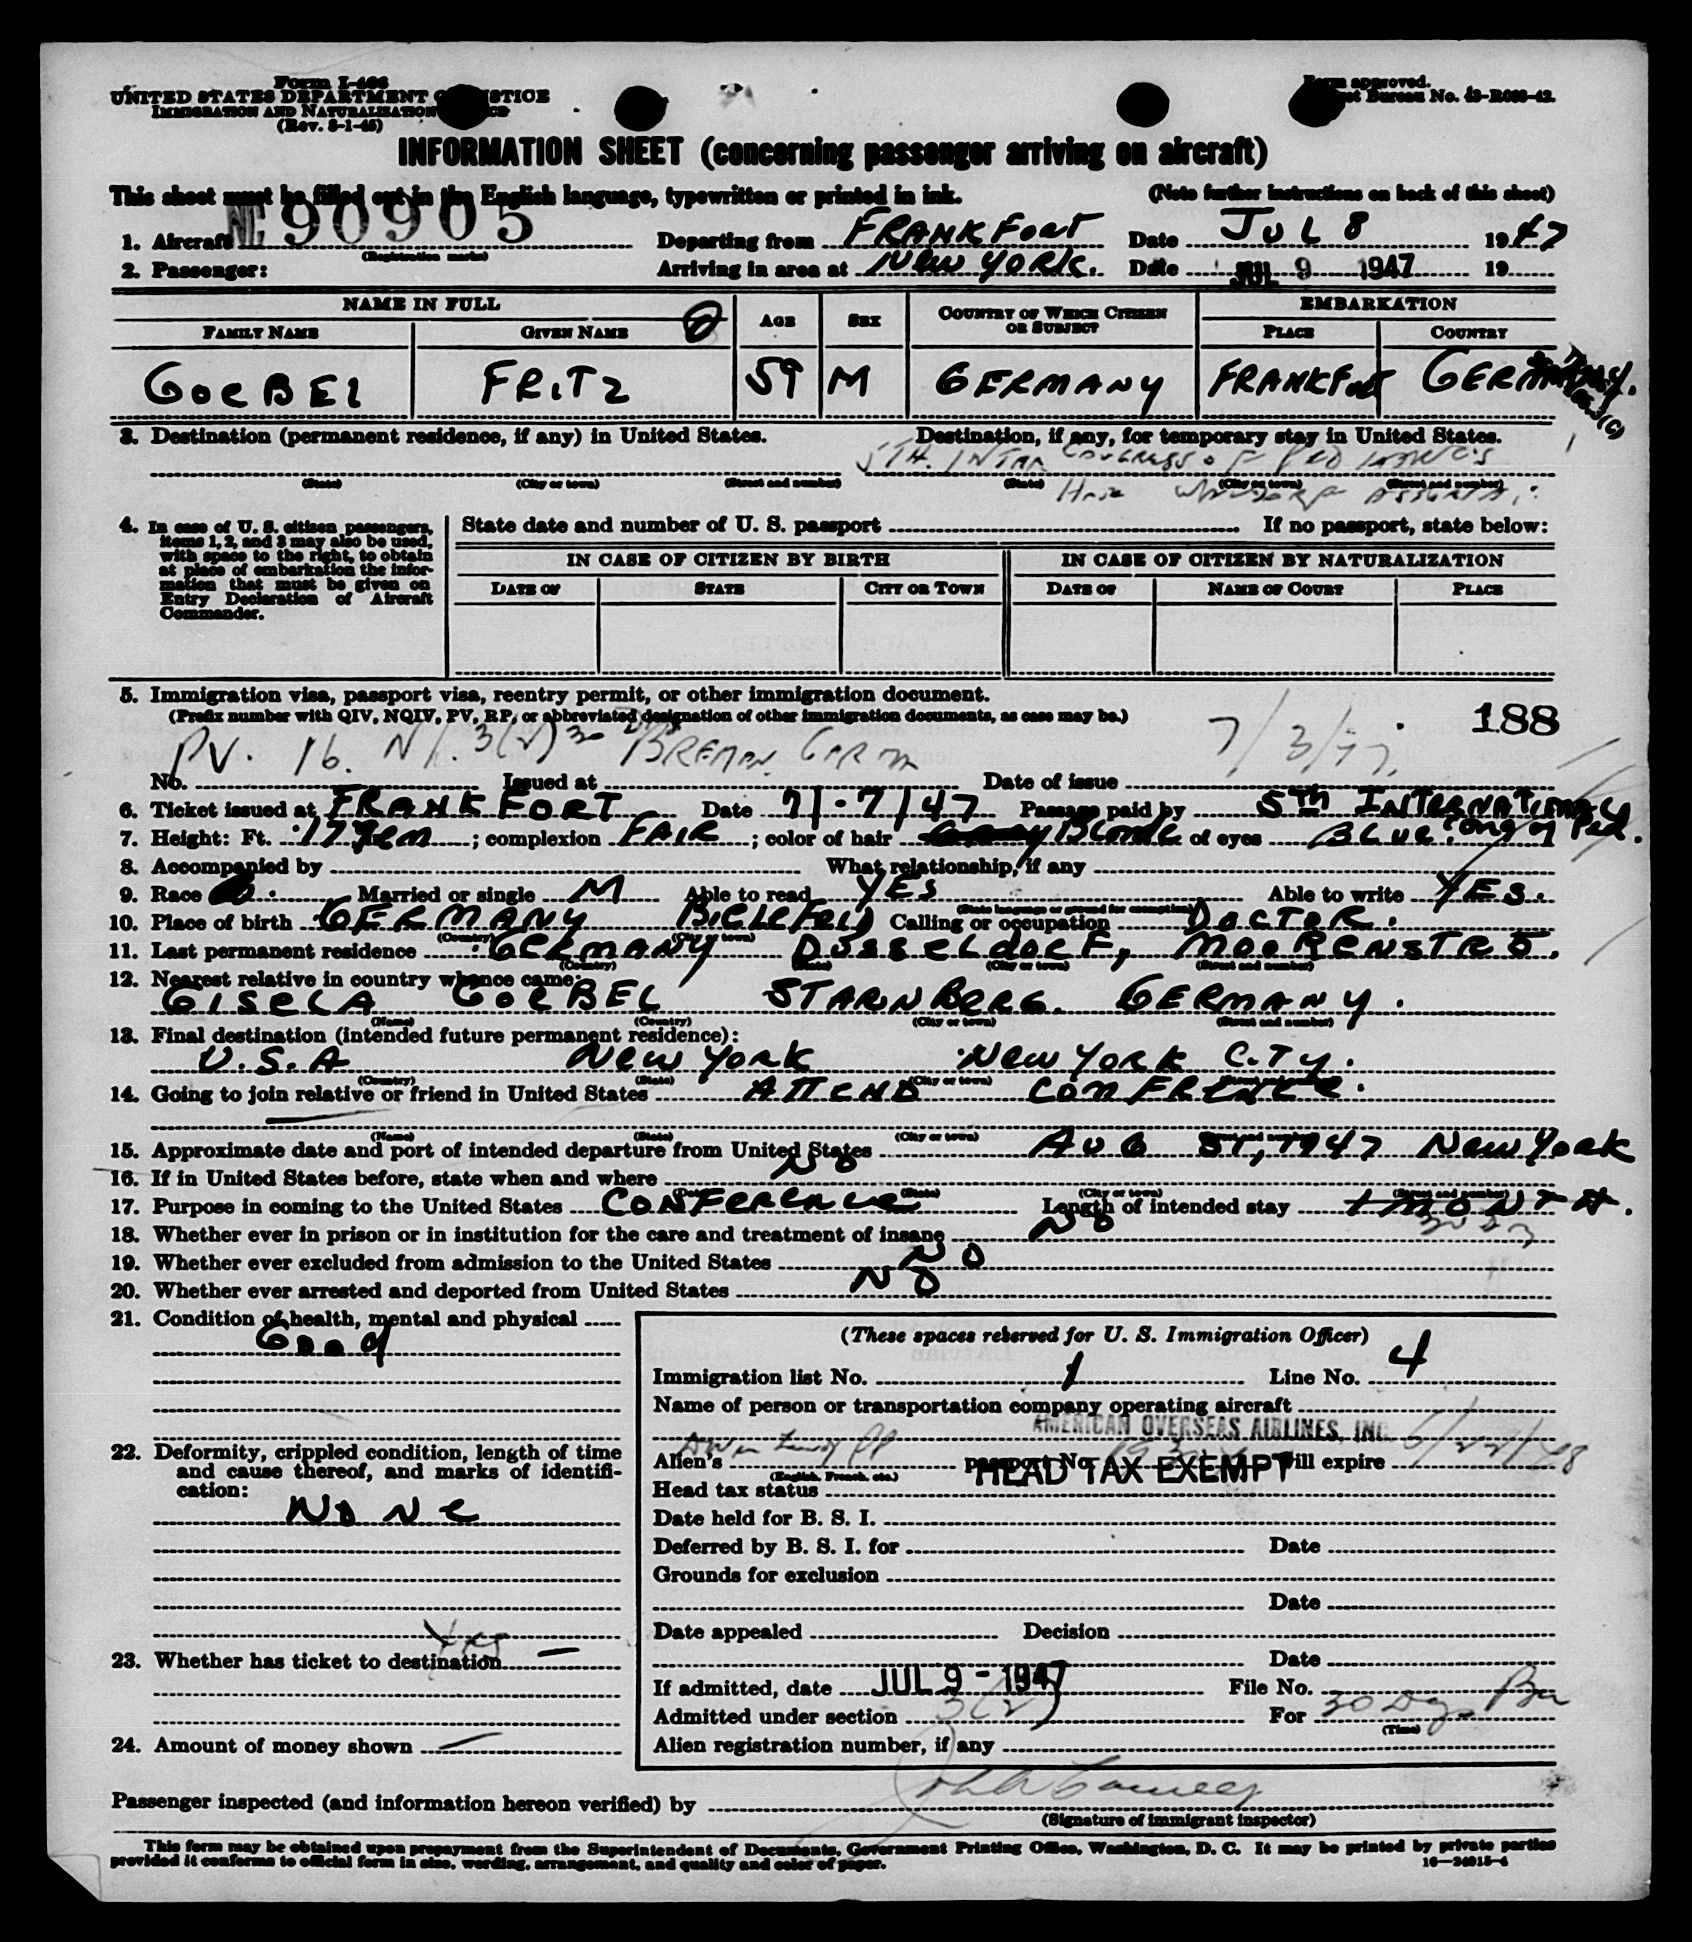 Form I-466
UNITED STATES DEPARTMENT OF JUSTICE
IMMIGRATION AND NATURALIZATION SERVICE
(Rev. 8-1-45)
Form approved.
Budget Bureau No. 43-R083-42.
INFORMATION SHEET (concerning passenger arriving on aircraft)
This sheet must be filled out in the English language, typewritten or printed in ink. (Note further instructions on back of this sheet)
1. Aircraft NC 90905 Departing from FRANKFORT Date JUL 8 1947
(Registration marks)
2. Passenger: Arriving in area at NEW YORK. Date JUL 9 1947 19
NAME IN FULL AGE SEX COUNTRY OF WHICH CITIZEN OR SUBJECT EMBARKATION
FAMILY NAME GIVEN NAME PLACE COUNTRY
GOEBEL FRITZ 59 M GERMANY FRANKFORT GERMANY.
3. Destination (permanent residence, if any) in United States. Destination, if any, for temporary stay in United States.
5TH. INTER CONGRESS OF PED
(State) (City or town) (Street and number) (State) (City or town) (Street and number)
4. In case of U. S. citizen passengers, items 1, 2, and 3 may also be used, with space to the right, to obtain at place of embarkation the information that must be given on Entry Declaration of Aircraft Commander.
State date and number of U. S. passport If no passport, state below:
IN CASE OF CITIZEN BY BIRTH IN CASE OF CITIZEN BY NATURALIZATION
DATE OF STATE CITY OR TOWN DATE OF NAME OF COURT PLACE
5. Immigration visa, passport visa, reentry permit, or other immigration document.
(Prefix number with QIV, NQIV, PV, RP, or abbreviated designation of other immigration documents, as case may be.) 188
No. PV. 16. N/. 3(2) 30 Issued at BREMEN. GERM Date of issue 7/3/47.
6. Ticket issued at FRANKFORT Date 7/-7/47 Passage paid by 5th INTERNATIONAL Cong of Ped.
7. Height: Ft. 179cm; complexion FAIR; color of hair Blonde of eyes BLUE.
8. Accompanied by What relationship, if any
9. Race Married or single M Able to read YES Able to write YES.
(State language or ground for exemption)
10. Place of birth GERMANY BIELEFELD Calling or occupation DOCTOR.
(Country) (City or town)
11. Last permanent residence GERMANY DUSSELDORF, MOORENSTR 5.
(Country) (State) (City or town) (Street and number)
12. Nearest relative in country whence came:
GISELA GOEBEL STARNBERG. GERMANY.
(Name) (Country) (City or town) (Street and number)
13. Final destination (intended future permanent residence):
U.S.A NEW YORK NEW YORK CITY.
(Country) (State) (City or town) (Street and number)
14. Going to join relative or friend in United States ATTEND CONFRENCE.
(Name) (State) (City or town) (Street and number)
15. Approximate date and port of intended departure from United States AUG 8T, 1947 NEW YORK
16. If in United States before, state when and where NO
(Date) (State) (City or town) (Street and number)
17. Purpose in coming to the United States CONFERENCE Length of intended stay 1 MONTH.
30 Dy
18. Whether ever in prison or in institution for the care and treatment of insane NO
19. Whether ever excluded from admission to the United States NO
20. Whether ever arrested and deported from United States NO
21. Condition of health, mental and physical
Good
22. Deformity, crippled condition, length of time and cause thereof, and marks of identification:
NONE
23. Whether has ticket to destination Yes
24. Amount of money shown
(These spaces reserved for U. S. Immigration Officer)
Immigration list No. 1 Line No. 4
Name of person or transportation company operating aircraft
AMERICAN OVERSEAS AIRLINES, INC.
Alien's passport No. will expire 6/22/48
(English, French, etc.)
Head tax status HEAD TAX EXEMPT
Date held for B. S. I.
Deferred by B. S. I. for Date
Grounds for exclusion
Date
Date appealed Decision
Date
If admitted, date JUL 9 - 1947 File No.
Admitted under section 3(2) For 30 Dy.
(Time)
Alien registration number, if any
Passenger inspected (and information hereon verified) by
(Signature of immigrant inspector)
This form may be obtained upon prepayment from the Superintendent of Documents, Government Printing Office, Washington, D. C. It may be printed by private parties
provided it conforms to official form in size, wording, arrangement, and quality and color of paper. 16—24915-4